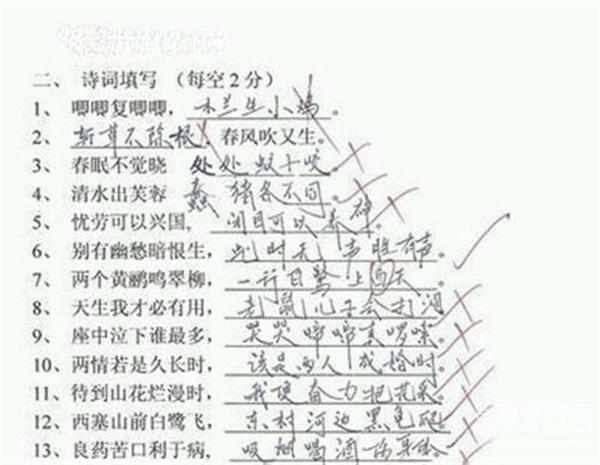 二、 诗词填写 （每空2分）
1、 唧唧复唧唧， 木兰生小鸡。
2、 斩草不除根，春风吹又生。
3、 春眠不觉晓 处处蚊子咬。
4、 清水出芙蓉 蠢猪各不同。
5、 忧劳可以兴国， 闭目可以养神。
6、 别有幽愁暗恨生， 此时无声胜有声。
7、 两个黄鹂鸣翠柳， 一行白鹭上西天。
8、 天生我才必有用， 老鼠儿子会打洞
9、 座中泣下谁最多， 哭哭啼啼真啰嗦。
10、两情若是久长时， 该是两人成婚时。
11、待到山花烂漫时， 我便奋力把花采。
12、西塞山前白鹭飞， 东村河边黑龟爬。
13、良药苦口利于病， 吸烟喝酒伤身体。